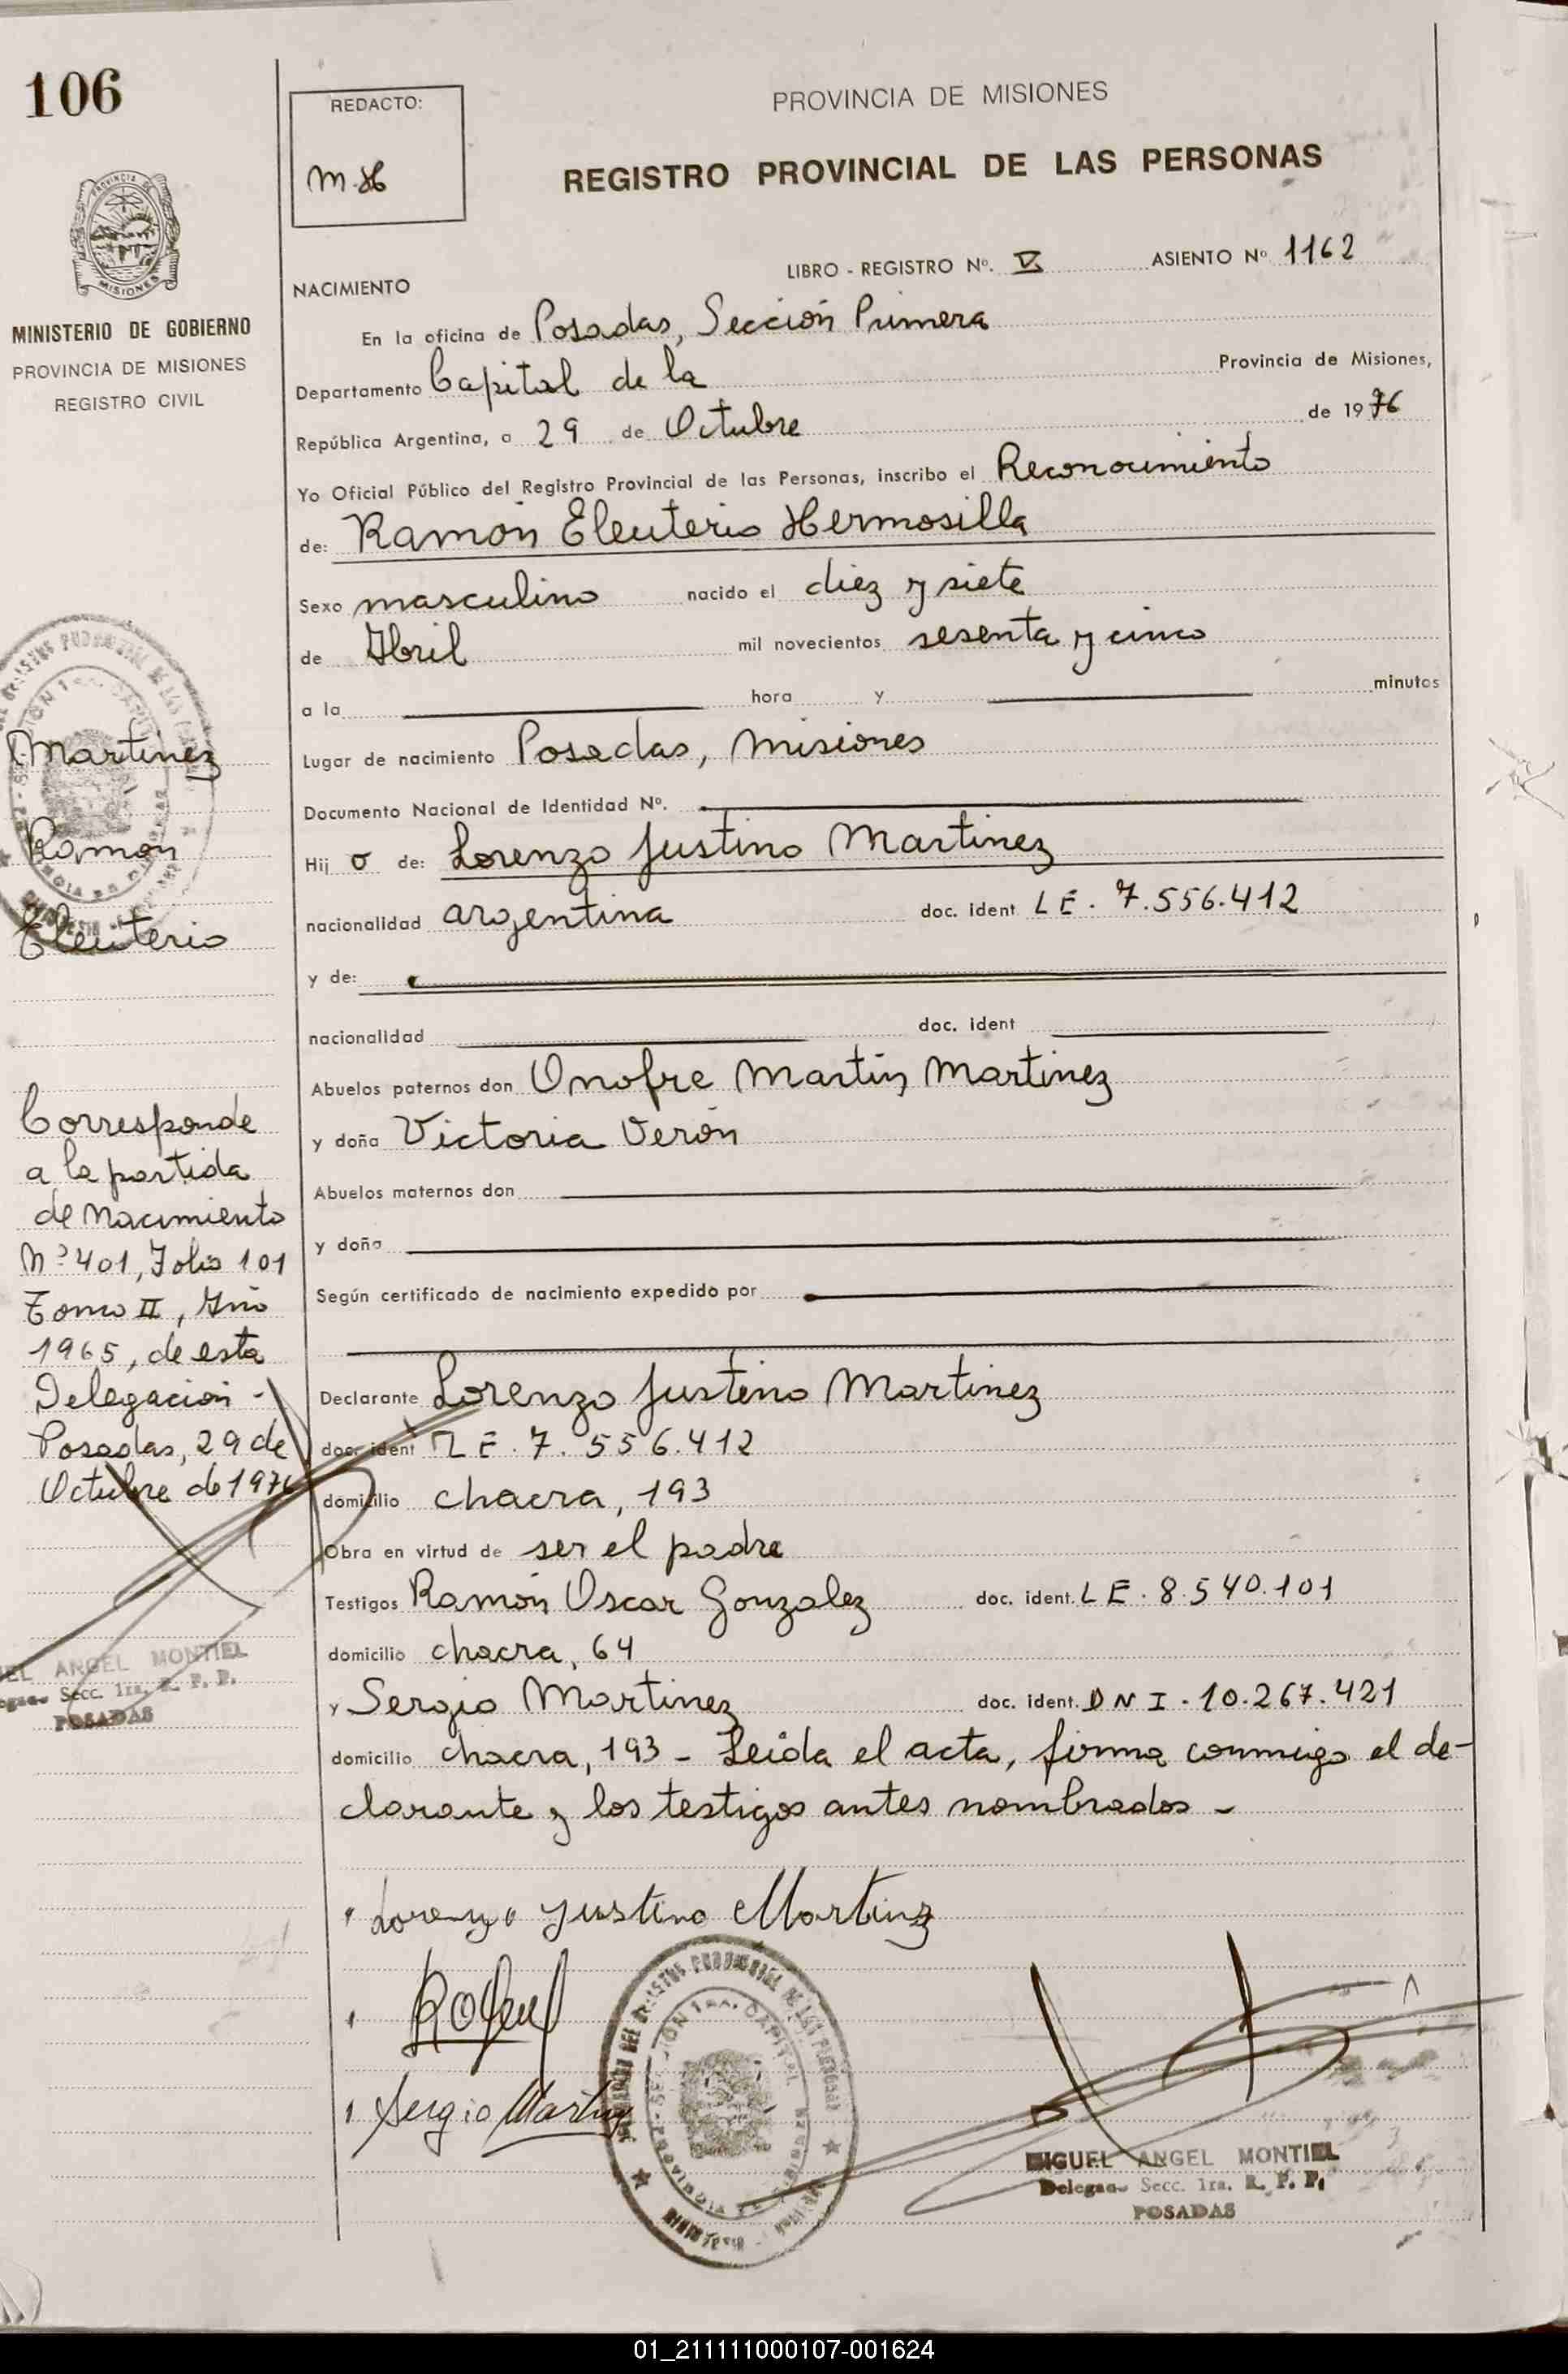 106
MINISTERIO DE GOBIERNO
PROVINCIA DE MISIONES
REGISTRO CIVIL
Martinez
Ramón
Eleuterio
Corresponde
a la partida
de Nacimiento
Nº 401, Folio 101
Tomo II, Año
1965, de esta
Delegación -
Posadas, 29 de
Octubre de 1976
ANGEL MONTIEL
Secc. 1ra. R. P. P.
POSADAS
REDACTO:
M.H
PROVINCIA DE MISIONES
REGISTRO PROVINCIAL DE LAS PERSONAS
LIBRO - REGISTRO Nº. V ASIENTO Nº 1162
NACIMIENTO
En la oficina de Posadas, Sección Primera
Departamento Capital de la Provincia de Misiones,
República Argentina, a 29 de Octubre de 1976
Yo Oficial Público del Registro Provincial de las Personas, inscribo el Reconocimiento
de: Ramón Eleuterio Hermosilla
Sexo masculino nacido el diez y siete
de Abril mil novecientos sesenta y cinco
a la hora y minutos
Lugar de nacimiento Posadas, Misiones
Documento Nacional de Identidad Nº.
Hij o de: Lorenzo Justino Martinez
nacionalidad argentina doc. ident LE. 7.556.412
y de:
nacionalidad doc. ident
Abuelos paternos don Onofre Martín Martinez
y doña Victoria Verón
Abuelos maternos don
y doña
Según certificado de nacimiento expedido por
Declarante Lorenzo Justino Martinez
doc. ident LE. 7.556.412
domicilio chacra, 193
Obra en virtud de ser el padre
Testigos Ramón Oscar Gonzalez doc. ident. LE. 8.540.101
domicilio chacra, 64
y Sergio Martinez doc. ident. DNI. 10.267.421
domicilio chacra, 193 - Leída el acta, firma conmigo el de-
clarante y los testigos antes nombrados -
Lorenzo Justino Martinez
Sergio Martinez
MIGUEL ANGEL MONTIEL
Delegado Secc. 1ra. R. P. P.
POSADAS
01_211111000107-001624